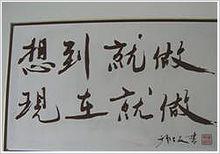 想到就做
現在就做